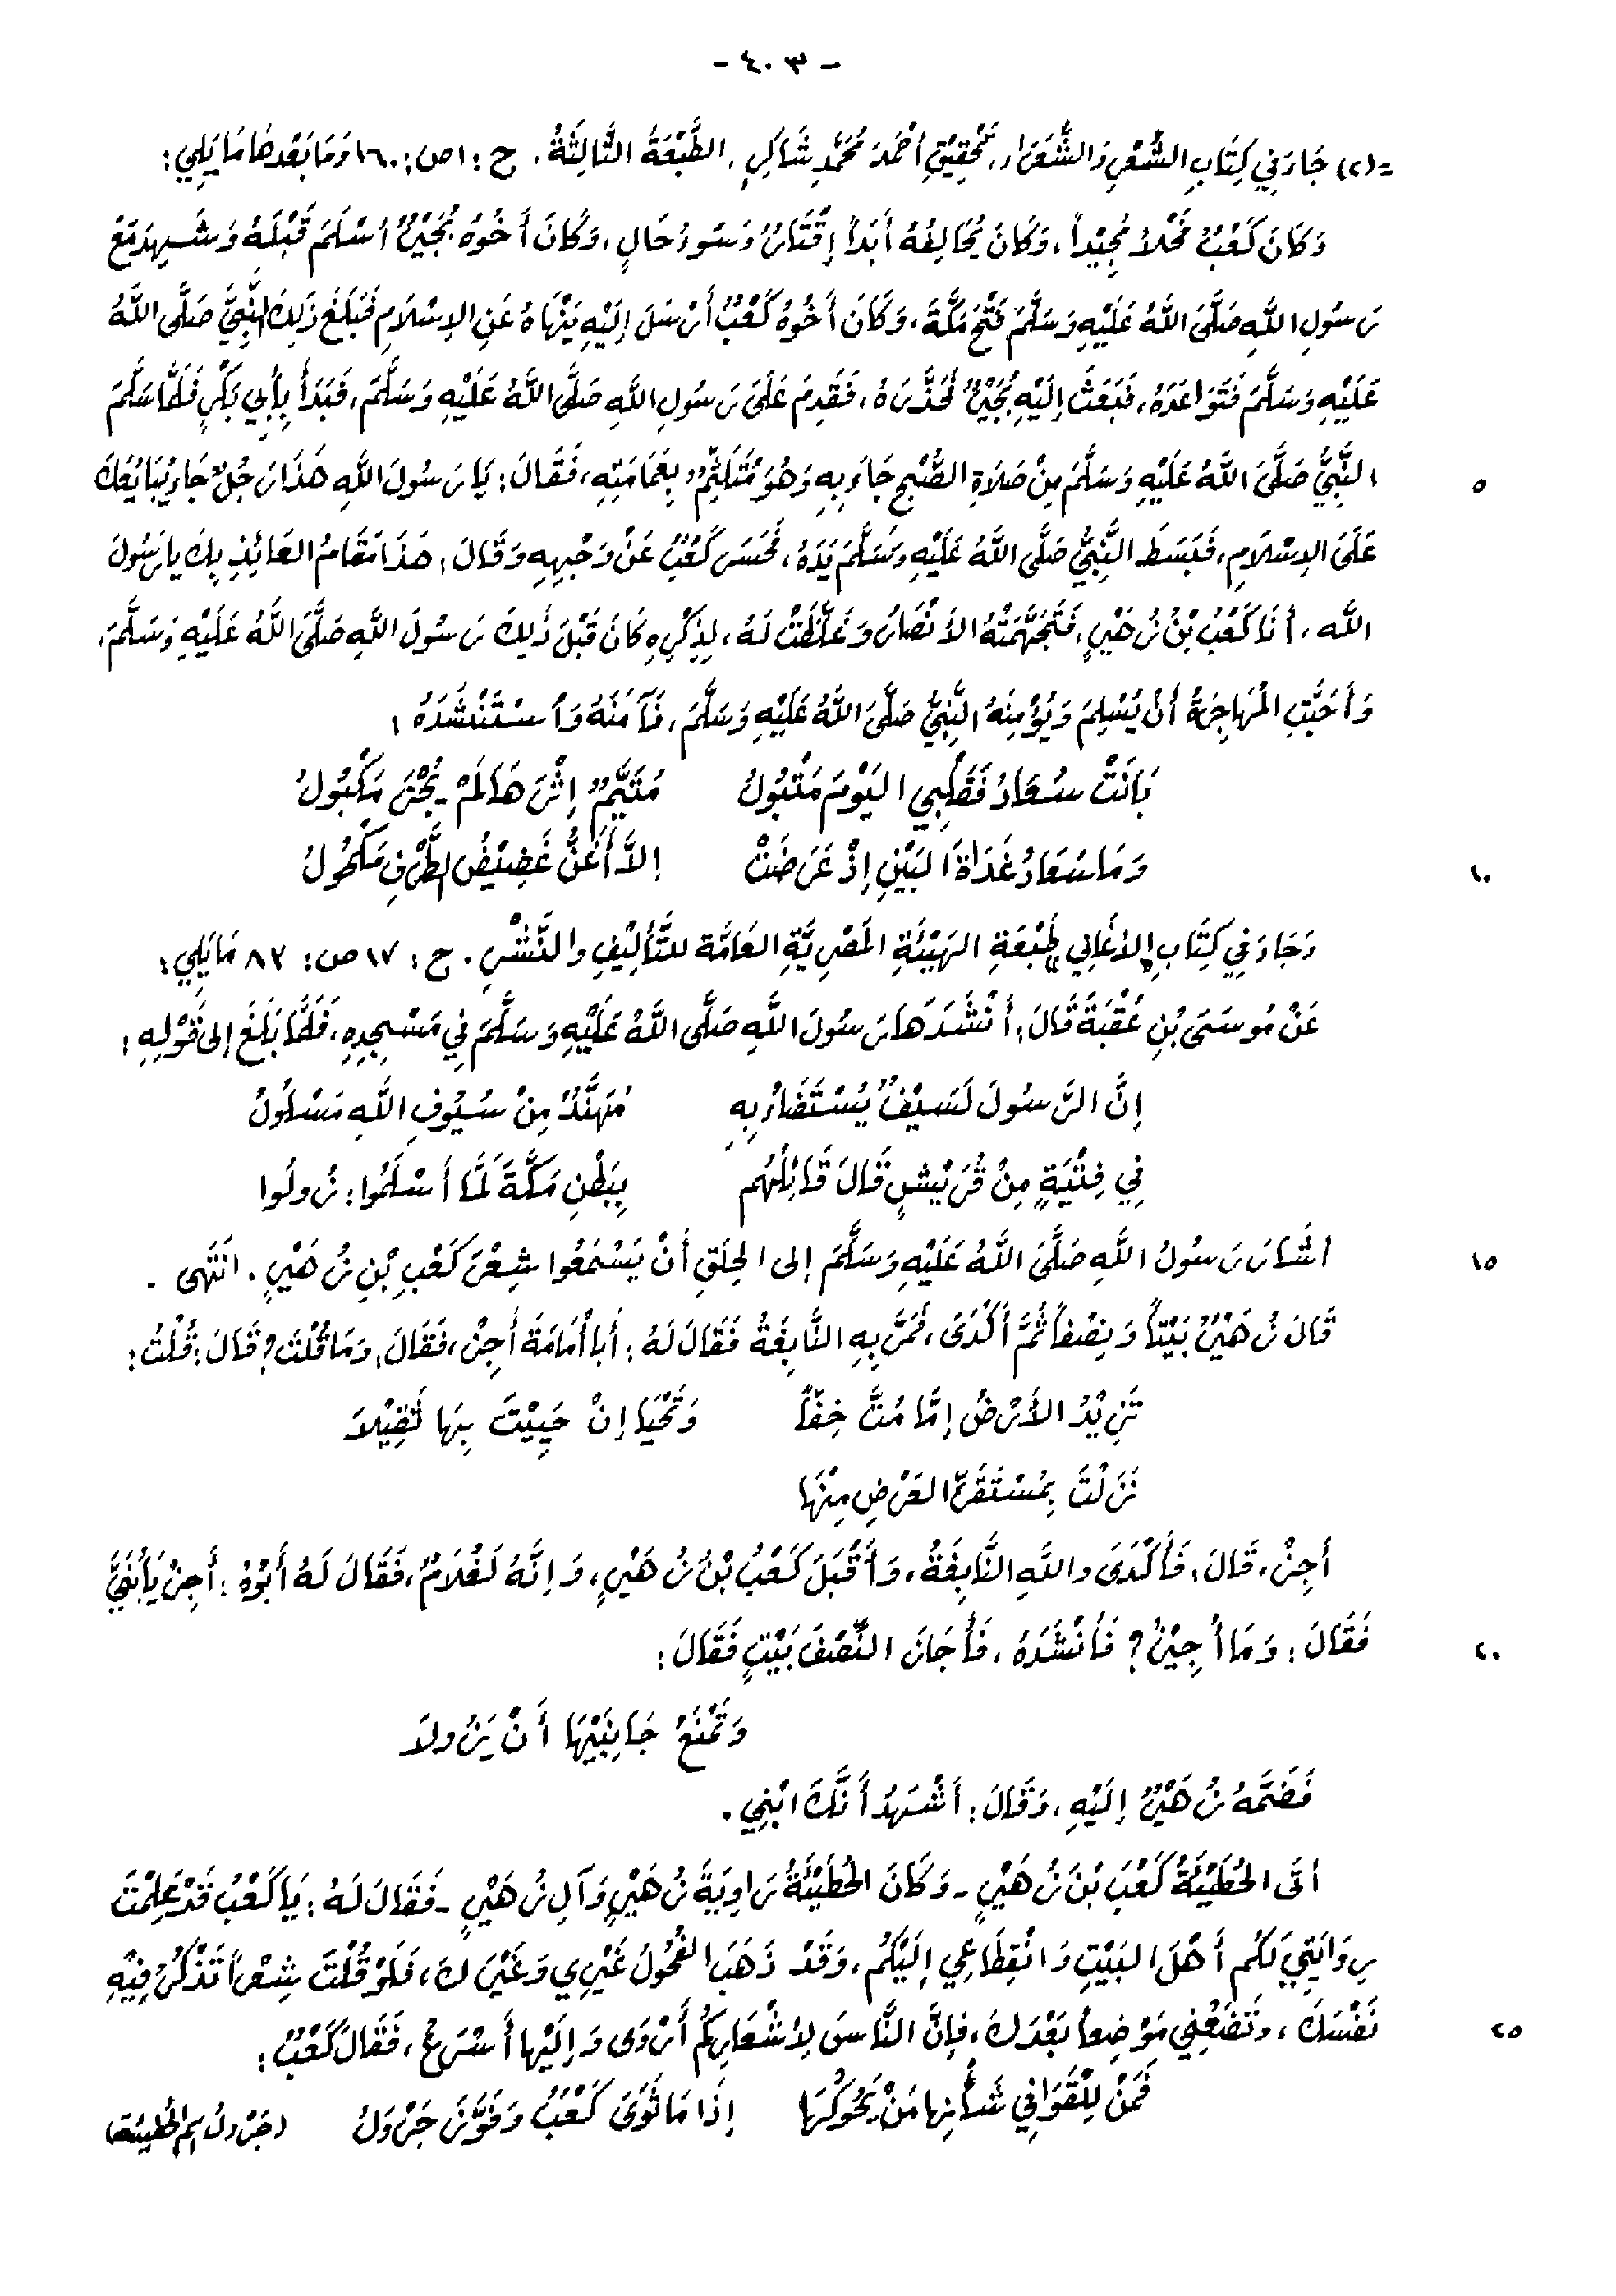 - ٤٠٣ -
=(٢) جَاءَ فِي كِتَابِ الشِّعْرِ وَالشُّعَرَاءِ، تَحْقِيْقِ أَحْمَدَ مُحَمَّدِ شَاكِرٍ، الطَّبْعَةُ الثَّالِثَةُ. ج: ١ ص: ١٦٠ وَمَا بَعْدَهَا مَا يَلِي:
وَكَانَ كَعْبٌ فَحْلاً مُجِيْداً، وَكَانَ يُحَالِفُهُ أَبَداً إِقْتَارٌ وَسُوءُ حَالٍ، وَكَانَ أَخُوهُ بُجَيْرٌ أسْلَمَ قَبْلَهُ وَشَهِدَ مَعَ
رَسُولِ اللَّهِ صَلَّىَ اللَّهُ عَلَيْهِ وَسَلَّمَ فَتْحَ مَكَّةَ، وَكَانَ أَخُوهُ كَعْبٌ أَرْسَلَ إِلَيْهِ يَنْهَاهُ عَنِ الإِسْلاَمِ فَبَلَغَ ذَلِكَ النَّبِيَّ صَلَّى اللَّهُ
عَلَيْهِ وَسَلَّمَ فَتَوَاعَدَهُ، فَبَعَثَ إِلَيْهِ بُجَيْرٌ فَحَذَّرَهُ، فَقَدِمَ عَلَىَ رَسُولِ اللَّهِ صَلَّى اللَّهُ عَلَيْهِ وَسَلَّمَ، فَبَدَأَ بِأَبِي بَكْرٍ فَلَمَّا سَلَّمَ
النَّبِيُّ صَلَّىَ اللَّهُ عَلَيْهِ وَسَلَّمَ مِنْ صَلاَةِ الصُّبْحِ جَاءَ بِهِ وَهُوَ مُتَلَثِّمٌ بِعَمَامَتِهِ، فَقَالَ: يَا رَسُولَ اللَّهِ هَذَا رَجُلٌ جَاءَ يُبَايُعَكَ ٥
عَلَىَ الإِسْلاَمِ، فَبَسَطَ النَّبِيُّ صَلَّىَ اللَّهُ عَلَيْهِ وَسَلَّمَ يَدَهُ، فَحَسَرَ كَعْبٌ عَنْ وَجْهِهِ وَقَالَ: هَذَا مَقَامُ العَائِذِ بِكَ يا رَسُولَ
اللَّه، أَنَا كَعْبُ بْنُ زُهَيْرٍ، فَتَجَهَّمَتْهُ الأَنْصَارُ وَغَلَّظَتْ لَهُ، لِذِكْرِهِ كَانَ قَبْلَ ذَلِكَ رَسُولَ اللَّهِ صَلَّىَ اللَّهُ عَلَيْهِ وَسَلَّمَ،
وَأَحَبَّتِ المُهَاجِرَةُ أَنْ يُسْلِمَ وَيُؤْمِنَهُ النَّبِيُّ صَلَّىَ اللَّهُ عَلَيْهِ وَسَلَّمَ، فَآمَنَهُ وَاسْتَنْشَدَهُ:
بَانَتْ سُعَادُ فَقَلْبِي اليَوْمَ مَتْبُولُ مُتَيَّمٌ إِثْرَهَا لَمْ يُجْزَ مَكْبُولُ
وَمَا سُعَادُ غَدَاةَ البَيْنِ إِذْ عَرَضَتْ إِلاَّ أَغَنُّ غَضِيْضُ الطَّرْفِ مَكْحُولُ ١٠
وَجَاءَ فِي كِتَابِ «الأَغَانِي» طَبْعَةِ الهَيْئَةِ المَصْرِيَّةِ العَامَّة للتَّأْلِيْفِ والنَّشْرِ. ج: ١٧ ص: ٨٣ مَا يَلِي:
عَنْ مُوسَىَ بْنِ عُقْبَةَ قَالَ: أَنْشَدَهَا رَسُولَ اللَّهِ صَلَّى اللَّهُ عَلَيْهِ وَسَلَّمَ فِي مَسْجِدِهِ، فَلَمَّا بَلَغَ إلى قَوْلِهِ:
إِنَّ الرَّسُولَ لَسَيْفٌ يُسْتَضَاءُ بِهِ مُهَنَّدٌ مِنْ سُيُوفِ اللَّهِ مَسْلُولُ
فِي فِتْيَةٍ مِنْ قُرَيْشٍ قَالَ قَائِلُهُم بِبَطْنِ مَكَّةَ لَمَّا أَسْلَمُوا: زُولُوا
أشَارَ رَسُولُ اللَّهِ صَلَّىَ اللَّهُ عَلَيْهِ وَسَلَّمَ إلى الحِلَقِ أَنْ يَسْمَعُوا شِعْرَ كَعْبِ بْنِ زُهَيْرٍ. انْتَهَى. ١٥
قَالَ زُهَيْرٌ بَيْتاً وَنِصْفاً ثُمَّ أَكْدَىَ، فَمَرَّ بِهِ النَّابِغَةُ فَقَالَ لَهُ: أَبا أُمَامَةَ أَجِزْ، فَقَالَ: وَمَا قُلْتَ؟ قَالَ: قُلْتُ:
تَزِيْدُ الأَرْضُ إِمَّا مُتَّ خِفًّا وَتَحْيَا إِنْ حَيِيْتَ بِهَا ثَقِيْلاَ
نَزَلْتَ بِمُسْتَقَرِّ العَرْضِ مِنْهَا
أَجِزْ، قَالَ: فَأَكْدَىَ واللَّهِ النَّابِغَةُ، وَأَقْبَلَ كَعْبُ بْنُ زُهَيْرٍ، وَإِنَّهُ لَغُلاَمٌ، فَقَالَ لَهُ أَبُوْهُ: أَجِزْ يَا بُنَيَّ
فَقَالَ: وَمَا أُجِيْزُ؟ فَأَنْشَدَهُ، فَأَجَازَ النِّصْفَ بَيْتٍ فَقَالَ: ٢٠
وَتَمْنَعُ جَانِبَيْهَا أَنْ يَزُولاَ
فَضَمَّهُ زُهَيْرٌ إِلَيْهِ، وَقَالَ: أَشْهَدُ أَنَّكَ ابْنِي.
أَتَى الحُطَيْئَةُ كَعْبَ بْنَ زُهَيْرٍ - وَكَانَ الحُطَيْئَةُ رَاوِيَةَ زُهَيْرٍ وَآلِ زُهَيْرٍ - فَقَالَ لَهُ: يَا كَعْبُ قَدْ عَلِمْتَ
رِوَايَتِي لَكُم أَهْلَ البَيْتِ وَانْقِطَاعِي إِلَيْكُمْ، وَقَدْ ذَهَبَ الفُحُولُ غَيْرِي وَغَيْرَكَ، فَلَوْ قُلْتَ شِعْراً تَذْكُرُ فِيْهِ
نَفْسَكَ، وَتَضَعُنِي مَوْضِعاً بَعْدَكَ، فإِنَّ النَّاسَ لأَشْعَارِكُمْ أَرْوَى وَإِلَيْها أَسْرَعُ، فَقَالَ كَعْبٌ: ٢٥
فَمَنْ لِلْقَوَافِي شَأْنِها مَنْ يَحُوكُهَا إِذَا مَا ثَوَىَ كَعْبٌ وَفَوَّزَ جَرْوَلُ (جَرْوَلُ إسم الحُطَيئة)